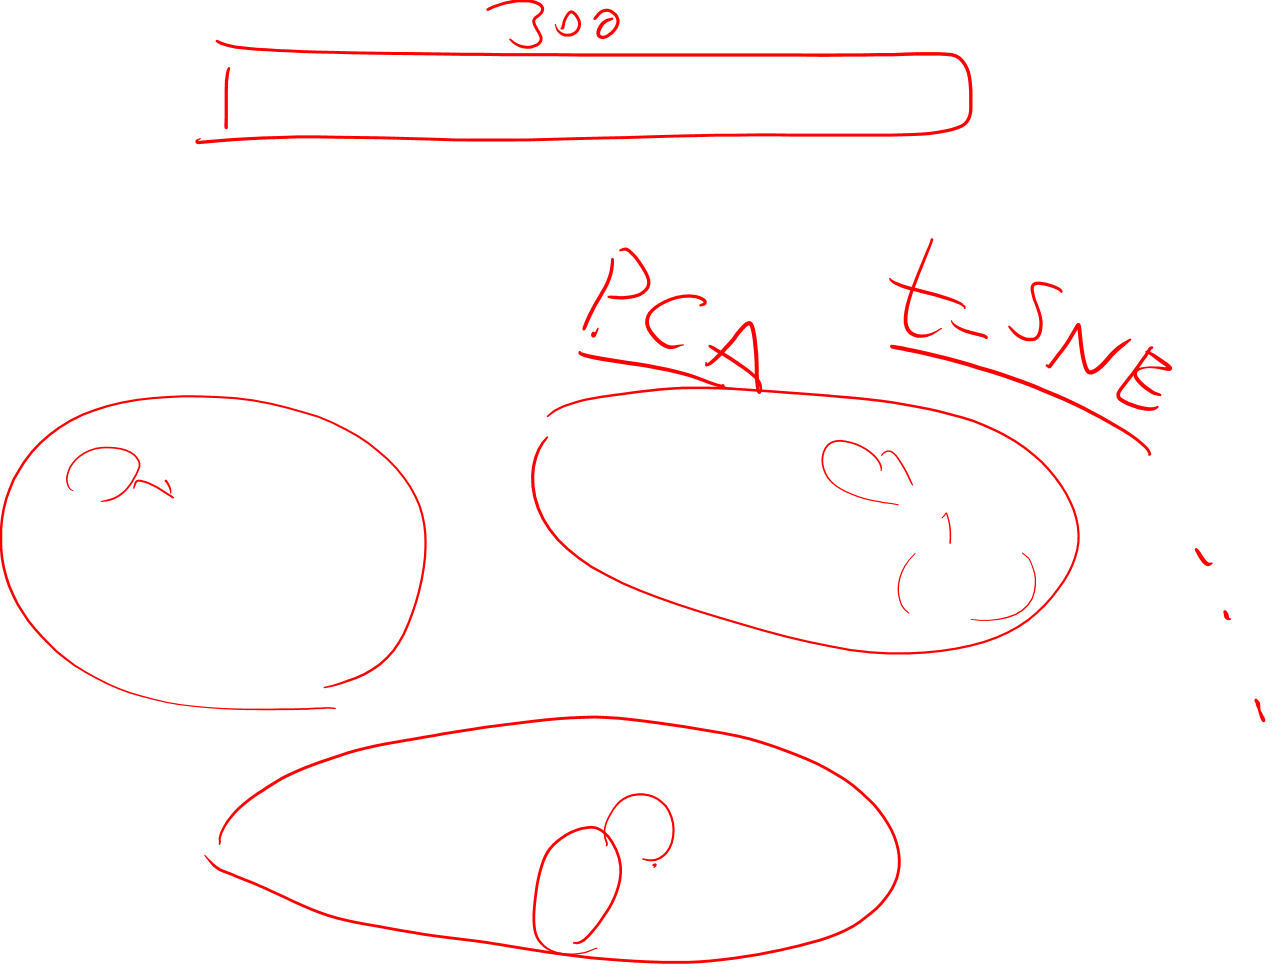 300
PCA t-SNE